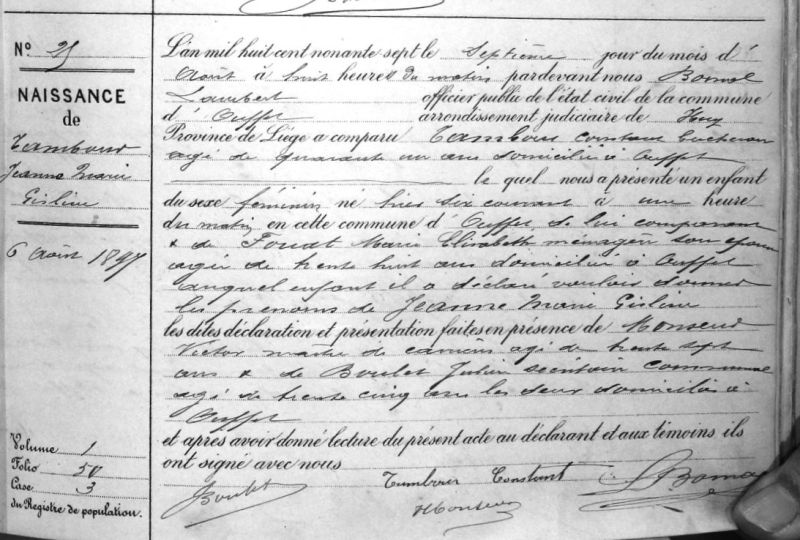 N° 25
NAISSANCE
de
Tambour
Jeanne Marie
Gisline
6 Août 1897
Volume 1
Folio 50
Case 3
du Registre de population.
L'an mil huit cent nonante-sept le Septième jour du mois d'
Août à huit heures du matin pardevant nous Bomal
Lambert officier public de l'état civil de la commune
d' Ouffet arrondissement judiciaire de Huy
Province de Liège a comparu Tambour Constant
agé de quarante un ans domicilié à Ouffet
le quel nous a présenté un enfant
du sexe féminin né hier six courant à une heure
du matin en cette commune d' Ouffet de lui comparant
& de Fouat Marie Elisabeth ménagère son épouse
agée de trente huit ans domicilié à Ouffet
auquel enfant il a déclaré vouloir donner
les prenoms de Jeanne Marie Gisline
les dites déclaration et présentation faites en présence de Monseur
Victor maître de carrières agé de trente sept
ans & de Boulet Julien secrétaire communal
agé de trente cinq ans les deux domiciliés à
Ouffet
et après avoir donné lecture du présent acte au déclarant et aux témoins ils
ont signé avec nous
JBoulet
Tambour Constant
LBomal
VMonseur